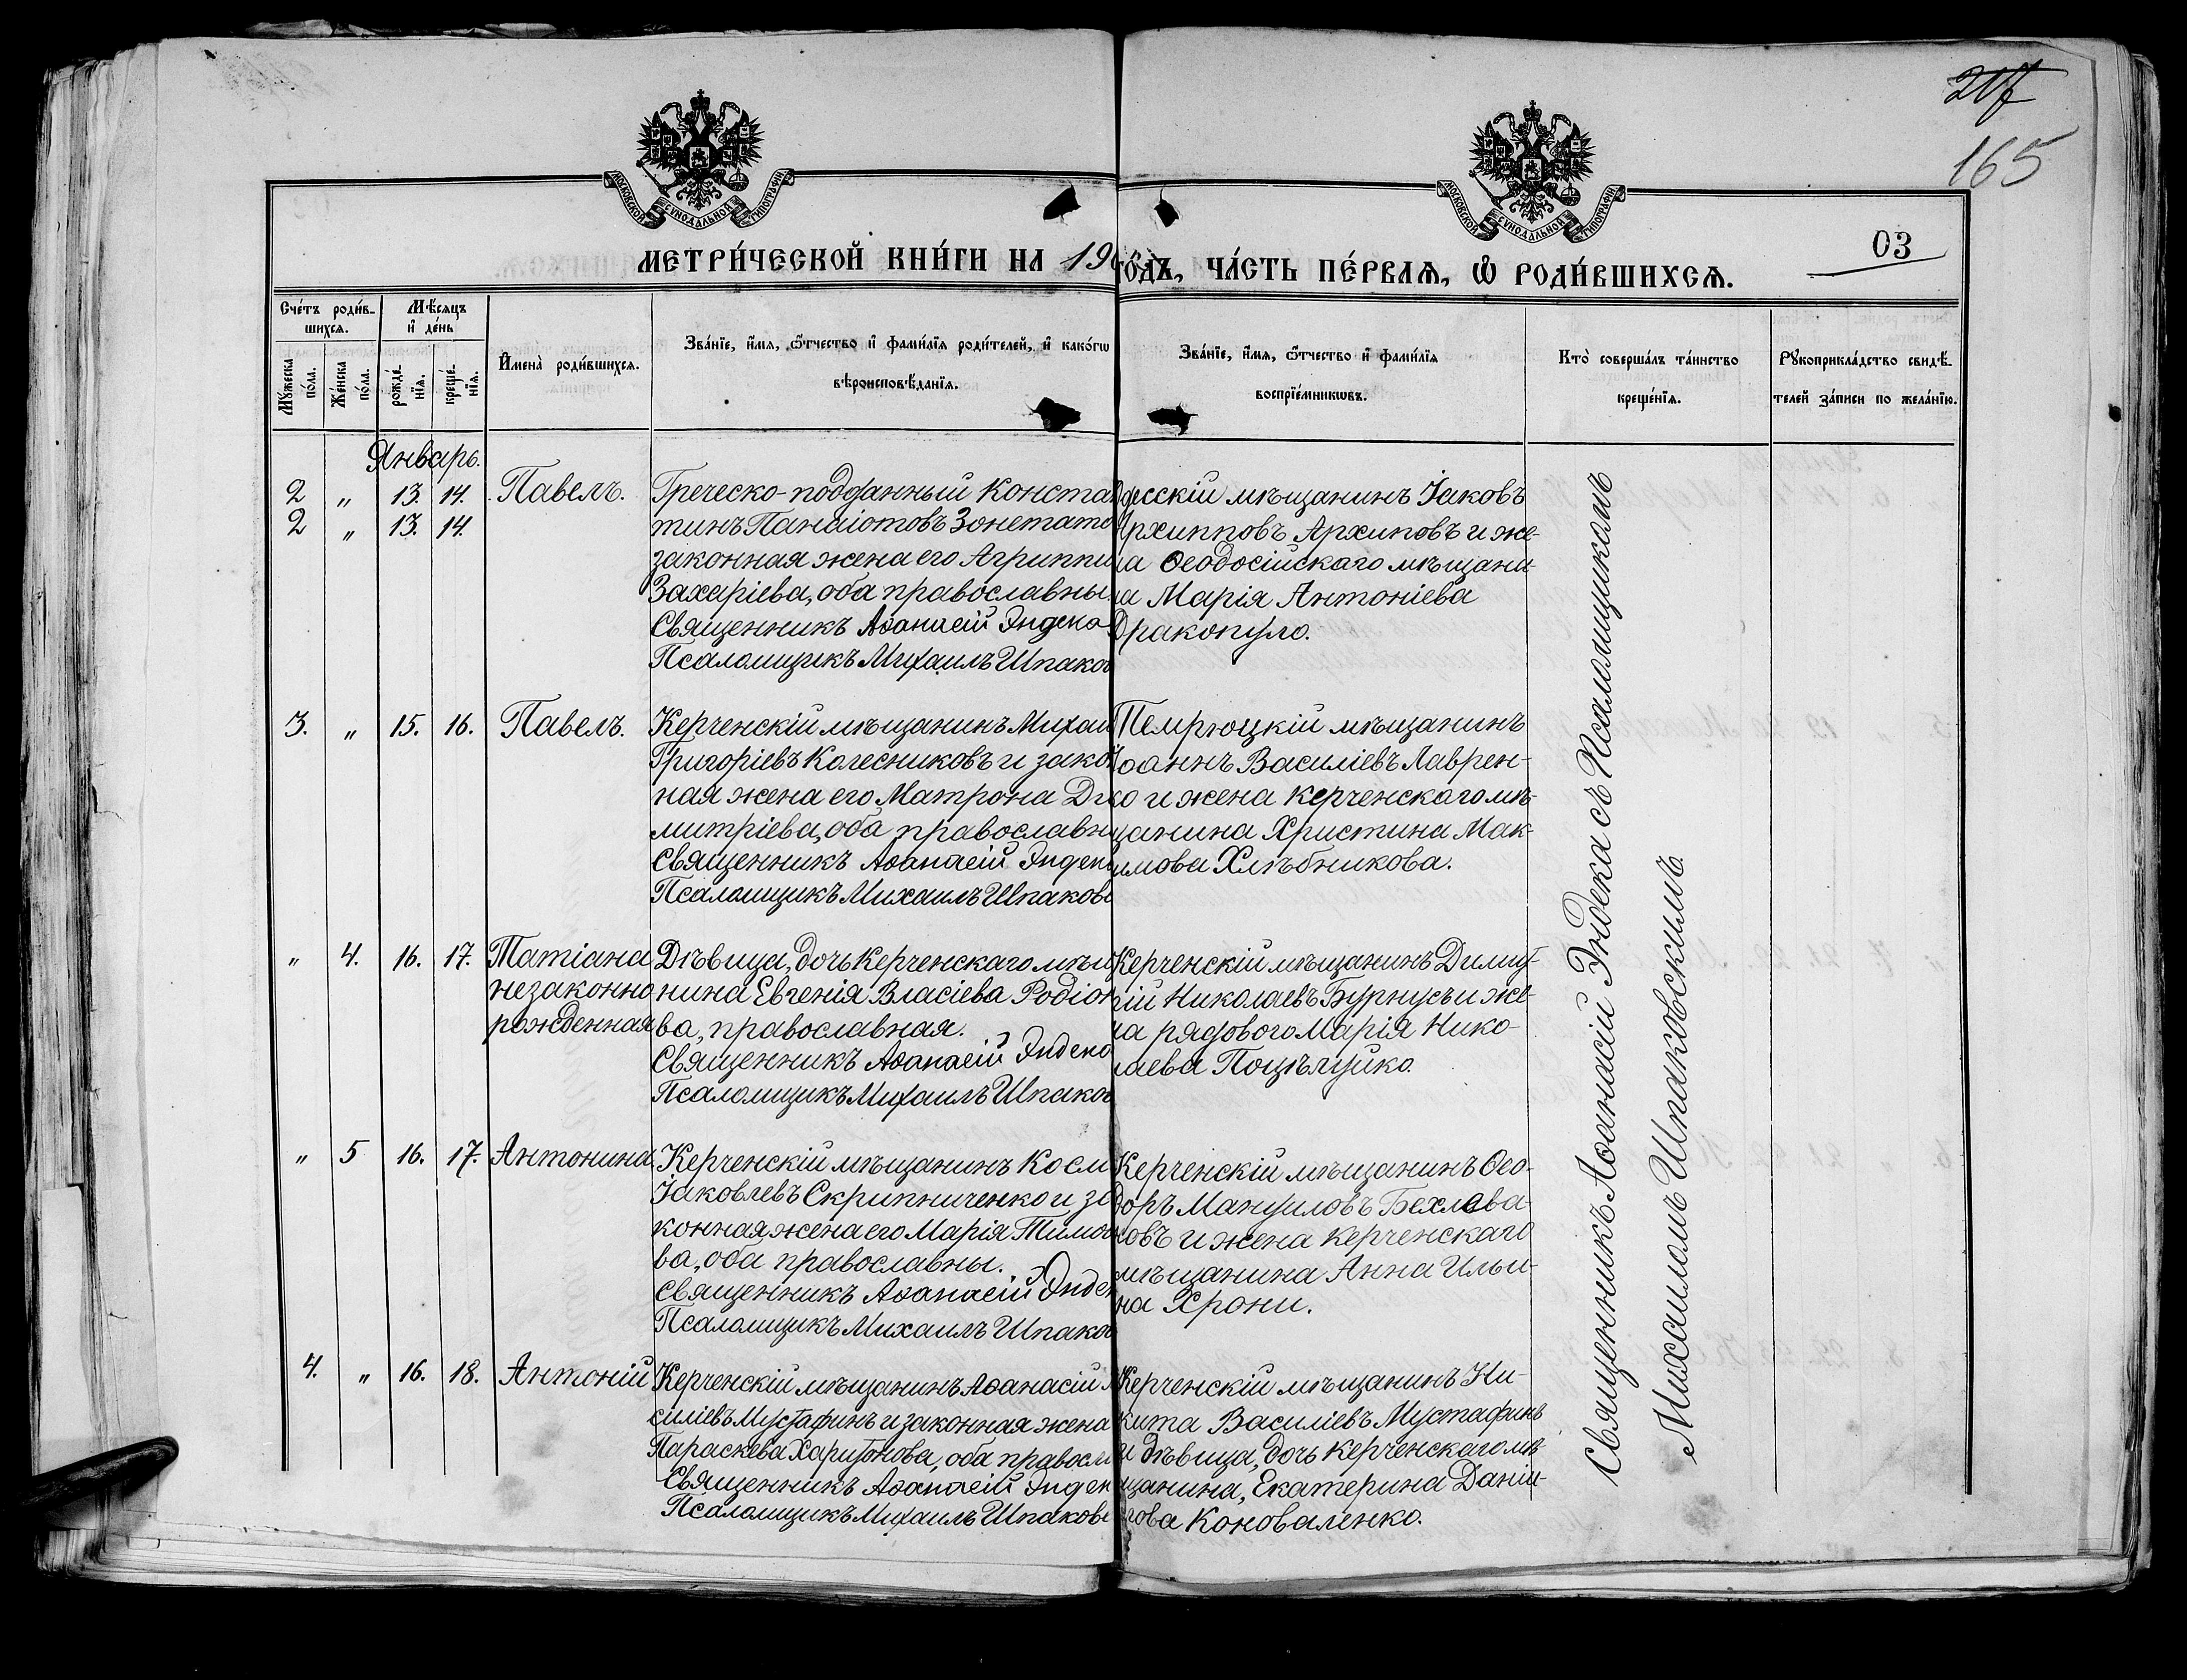 217
165
МОСКОВСКОЙ СУНОДАЛЬНОЙ ТИПОГРАФІИ
МОСКОВСКОЙ СУНОДАЛЬНОЙ ТИПОГРАФІИ
МЕТРИ́ЧЕСКОЙ КНИ́ГИ НА 19
ГО́ДЪ, ЧА́СТЬ ПЕ́РВАѦ, Ѽ РОДИ́ВШИХСѦ.
03
Сче́тъ роди́в-
шихсѧ.
Мѣ́сѧцъ
и҆ де́нь
Мꙋ́жеска
по́ла.
Же́нска
по́ла.
рожде́-
нїѧ.
креще́-
нїѧ.
И҆мена̀ роди́вшихсѧ.
Зва́нїе, и҆́мѧ, ѻ҆́тчество и҆ фами́лїѧ роди́телей, и҆ како́гѡ
вѣроисповѣ́данїѧ.
Зва́нїе, и҆́мѧ, ѻ҆́тчество и҆ фами́лїѧ
воспрїе́мникѡвъ.
Кто̀ соверша́лъ та́инство
креще́нїѧ.
Рꙋкоприкла́дство свидѣ́-
телей за́писи по жела́нїю.
Январь.
2 " 13. 14. Павелъ.
2 " 13. 14.
Греческо-подданный Конста
тинъ Панаіотовъ Зонетато
законная жена его Агриппи
Захаріева, оба православны.
Священникъ Аѳанасій Эндека
Псаломщикъ Михаилъ Шпаков
десскій мѣщанинъ Іаковъ
Архипповъ Архиповъ и же-
на Ѳеодосійскаго мѣщани-
на Марія Антоніева
Дракопуло.
3. " 15. 16. Павелъ.
Керченскій мѣщанинъ Михаи
Григоріевъ Колесниковъ и закон
ная жена его Матрона Ди
митріева, оба православн
Священникъ Аѳанасій Эндек
Псаломщикъ Михаилъ Шпаковс
Темрюцкій мѣщанинъ
Іоаннъ Василіевъ Лаврен-
ко и жена керченскаго мѣ-
щанина Христина Мак-
имова Хлѣбникова.
" 4. 16. 17. Татіана
незаконно
рожденная
Дѣвица, дочь Керченскаго мѣщ
нина Евгенія Власіева Родіон
ва, православная.
Священникъ Аѳанасій Эндека
Псаломщикъ Михаилъ Шпаков
Керченскій мѣщанинъ Димит-
рій Николаевъ Бурнусъ и же-
на рядового Марія Нико-
лаева Поцѣлуйко.
" 5 16. 17. Антонина
Керченскій мѣщанинъ Косм
Іаковлевъ Скрипниченко и за
конная жена его Марія Тимоѳ
ва, оба православны.
Священникъ Аѳанасій Эндек
Псаломщикъ Михаилъ Шпаков
Керченскій мѣщанинъ Ѳео-
доръ Мануиловъ Бехлева-
новъ и жена керченскаго
мѣщанина Анна Ильи-
на Хрони.
4. " 16. 18. Антоній
Керченскій мѣщанинъ Аѳанасій
силіевъ Мустафинъ и законная жена
Параскева Харитонова, оба правосл
Священникъ Аѳанасій Эндек
Псаломщикъ Михаилъ Шпаковс
Керченскій мѣщанинъ Ни-
кита Василіевъ Мустафинъ
и дѣвица, дочь керченскаго мѣ-
щанина, Екатерина Даніи-
лова Коноваленко.
Священникъ Аѳанасій Эндека съ Псаломщикомъ
Михаиломъ Шпаковскимъ